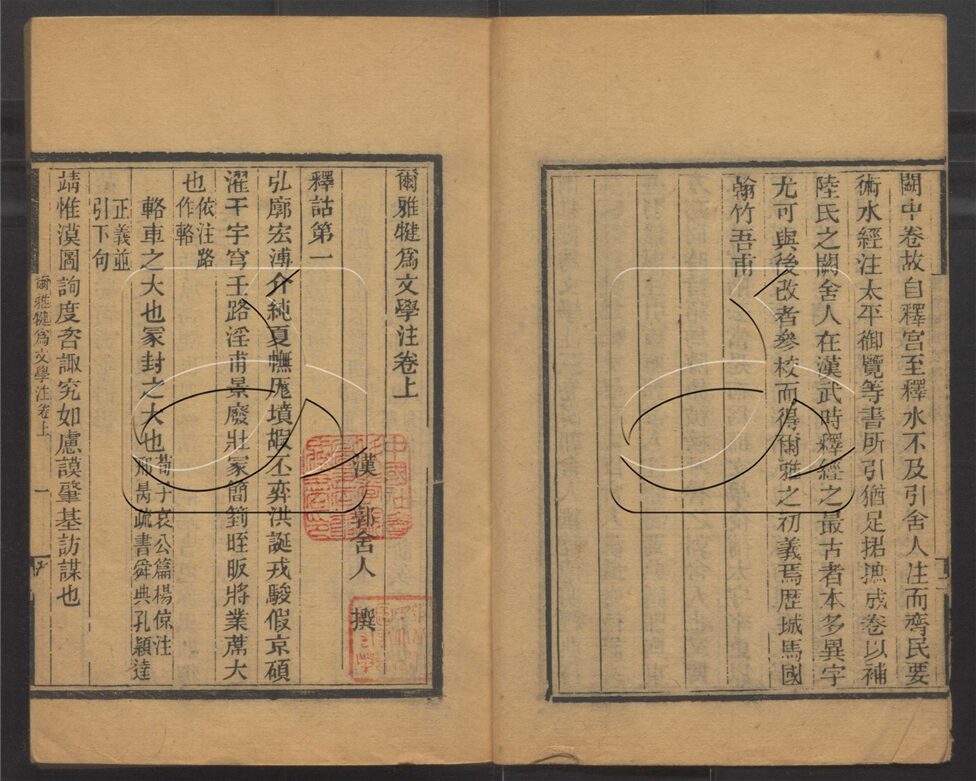 闕中卷故自釋宮至釋水不及引舍人注而齊民要
術水經注太平御覽等書所引猶足捃摭成卷以補
陸氏之闕舍人在漢武時釋經之最古者本多異字
尤可與後改者參校而得爾雅之初義焉歷城馬國
翰竹吾甫
爾雅犍爲文學注卷上
漢郭舍人 撰
釋詁第一
弘廓宏溥介純夏幠厖墳嘏丕弈洪誕戎駿假京碩
濯 宇穹壬路淫甫景廢壯冢簡箌晊昄將業蓆大
也依注路
作輅
輅車之大也冢封之大也荀子哀公篇楊倞注
邢昺疏書舜典孔穎達
正義並
引下句
靖惟漠圖詢度咨諏究如慮謨肇基訪謀也
爾雅犍爲文學注卷上 一